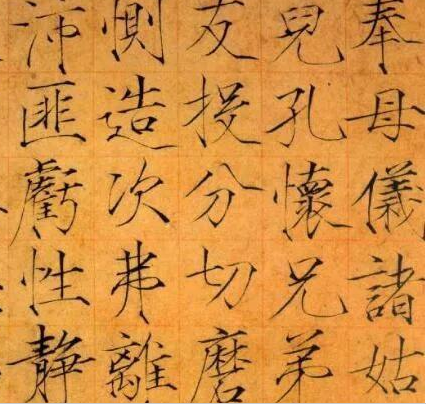 奉母儀諸姑
兒孔懷兄弟
友投分切磨
惻造次弗離
沛匪虧性靜